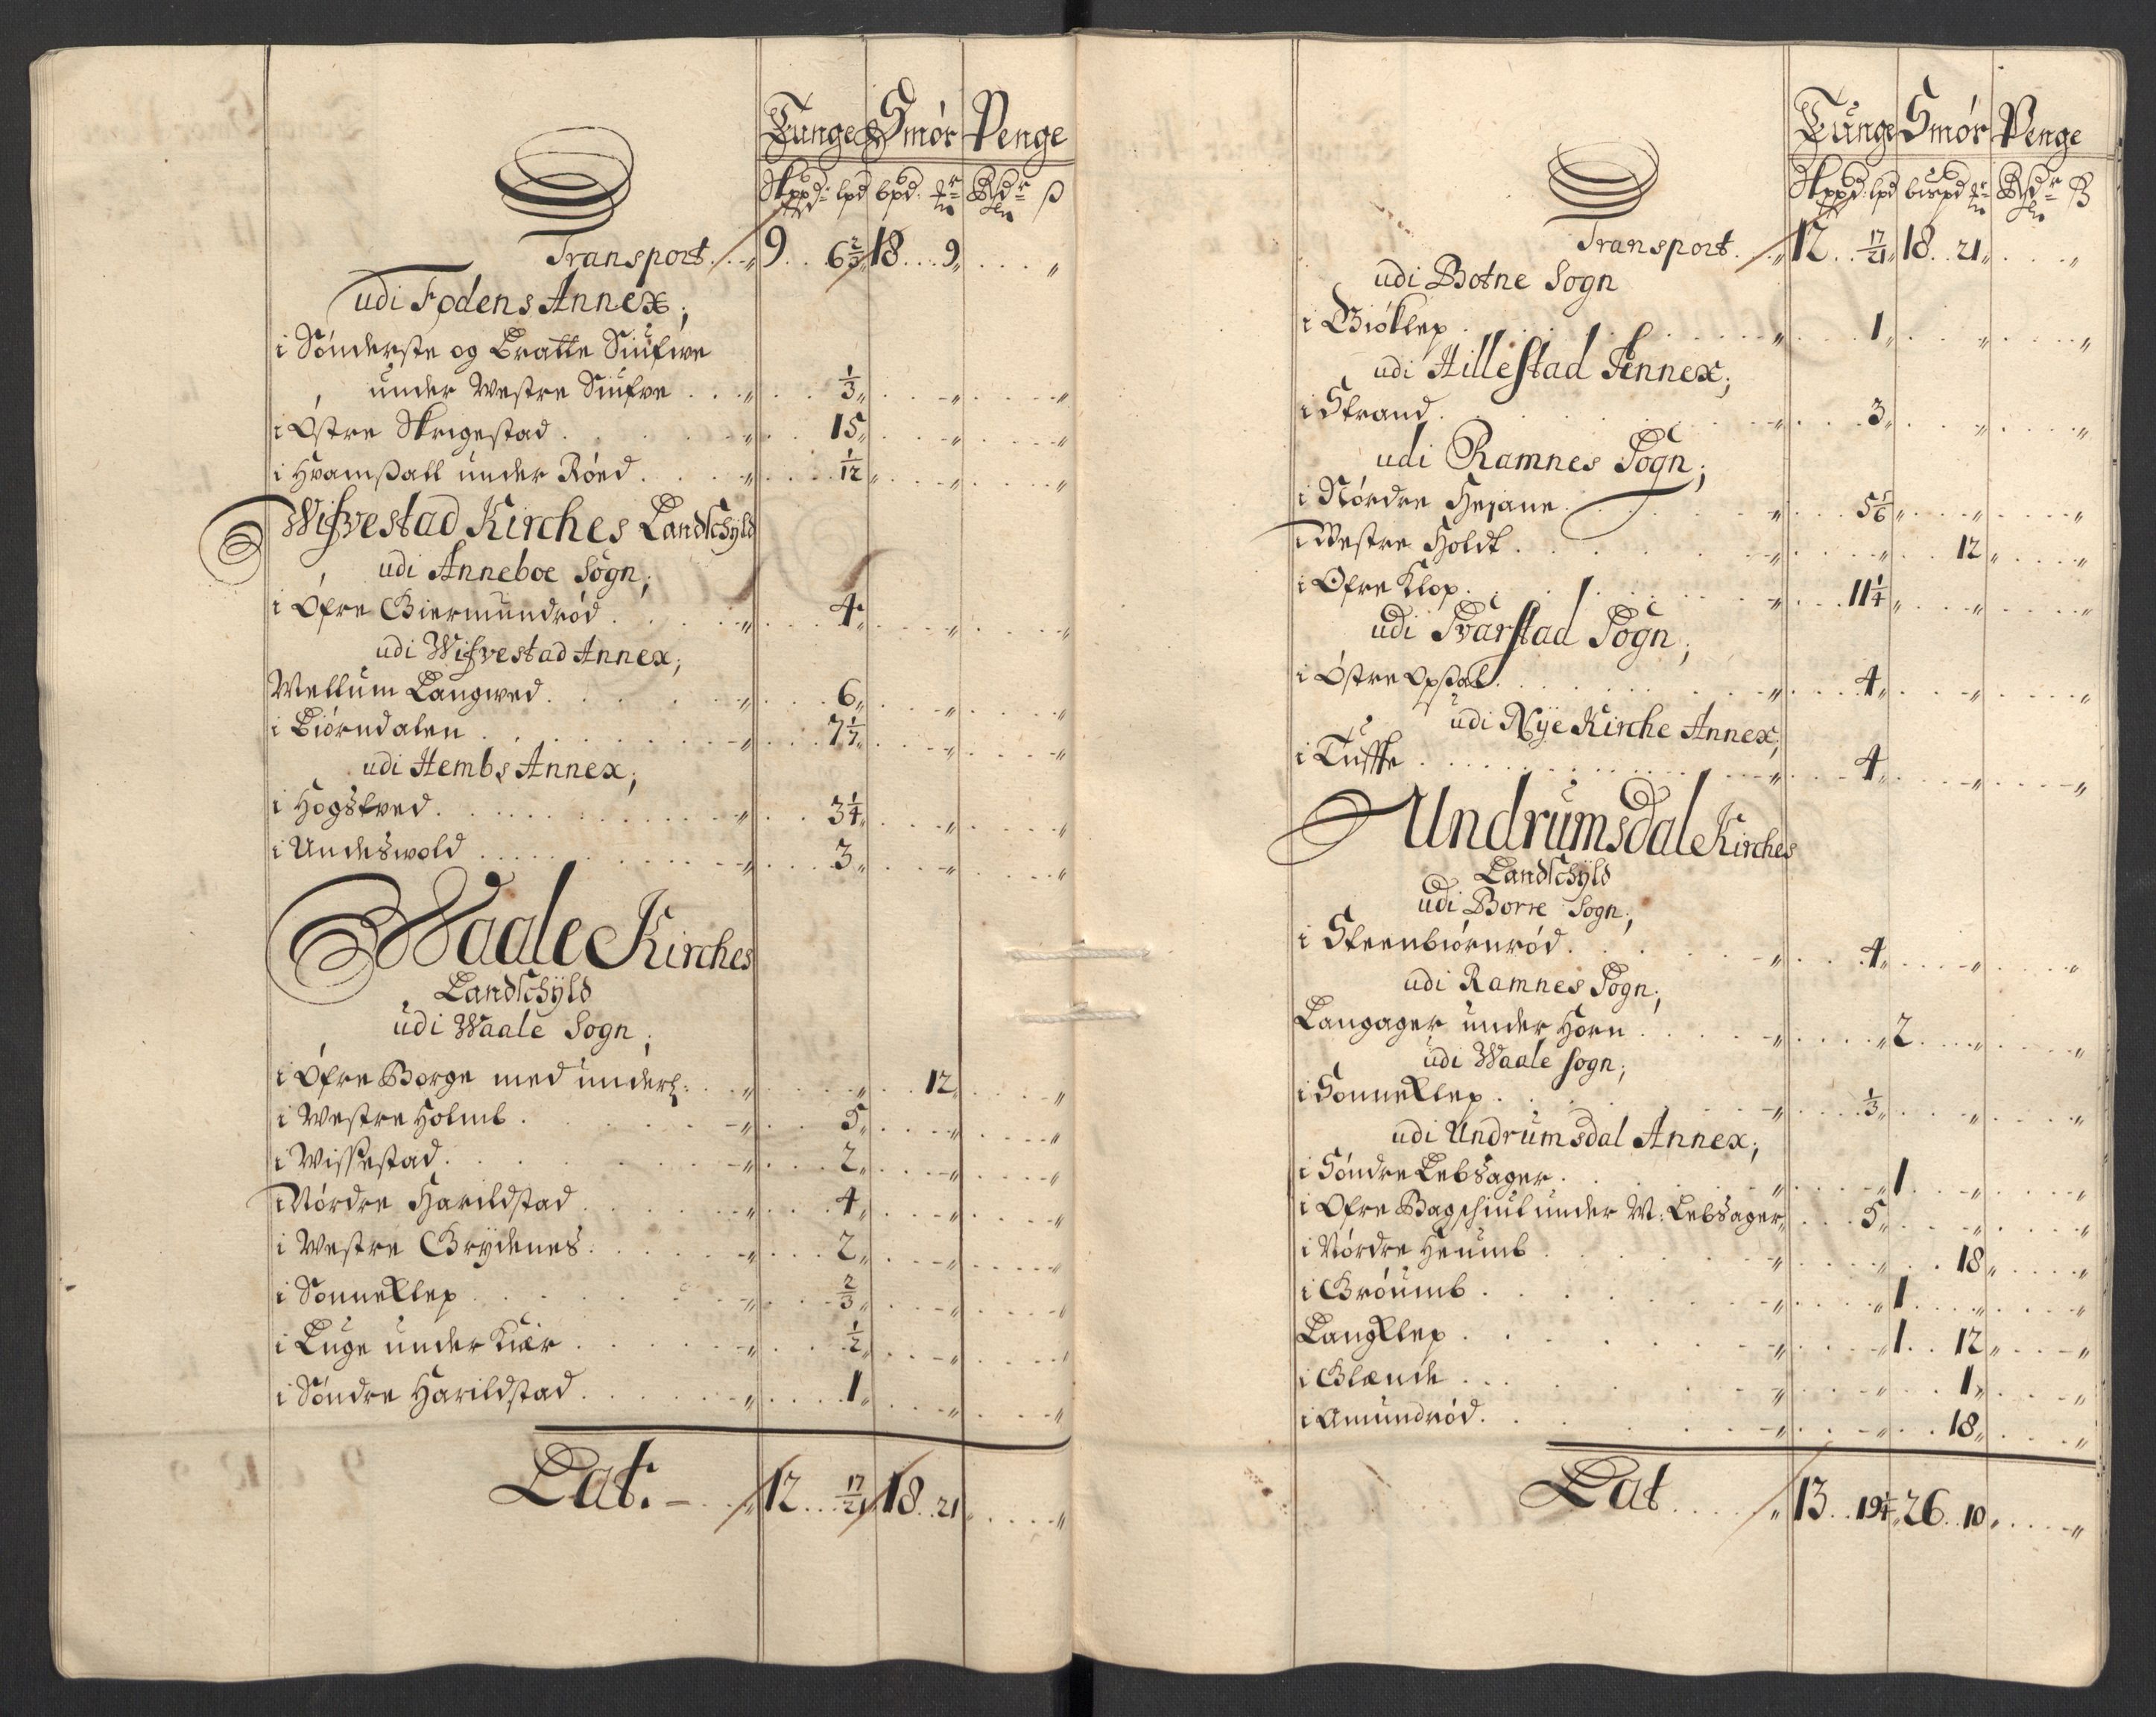 Tunge Smör Penge
Skppd: lpd bpd: Rdr ß
Transport 9 6 2/3 18 9
udi Fodens Annex;
i Sönderste og Bratte Siufwe
under Westre Siufve 1/3
i Östre Skrigestad 15
i Hvamsall under Röed 1/12
Wifvestad Kirches Landschÿld
udi Anneboe Sogn;
i Öfre Giermundröd 4
udi Wifvestad Annex;
Wellum Langwed 6
i Biörndalen 7 1/7
udi Hembs Annex;
i Hogstved 3 1/4
i Undeswold 3
Waale Kirches
Landschÿld
udi Waale Sogn;
i Öfre Borge med underl: 12
i Westre Holmb 5
i Wissestad 2
i Nördre Harildstad 4
i Westre Grÿdenes 2
i SonneKlep 2/3
i Luge under Kiær 1/2
i Söndre Harildstad 1
Lat: 12 17/21 18 21
Tunge Smör Penge
Skppd: lpd bispd Rdr ß
Transport 12 17/21 18 21
udi Botne Sogn
i Giöklep 1
udi Hillestad Annex;
i Strand 3
udi Ramnes Sogn;
i Nördre Hejane 5 1/6
i Westre Holdt 12
i Ofre Klop 11 1/4
udi Svarstad Sogn;
i Östre Opsal 4
udi Nÿe Kirche Annex;
i Tuffte 4
Undrumsdal Kirches
Landschÿld
udi Borre Sogn;
i Steenbiörnröd 4
udi Ramnes Sogn;
Langager under Horn 2
udi Waale Sogn;
i SonneKlep 1/3
udi Undrumsdal Annex;
i Söndre Lebsager 1
i Ofre Bagschiul under W: Lebsager 5
i Nördre Heumb 18
i Gröumb 1
LangKlep 1 12
i Glende 1
i Amundröd 18
Lat 13 19 1/4 26 10